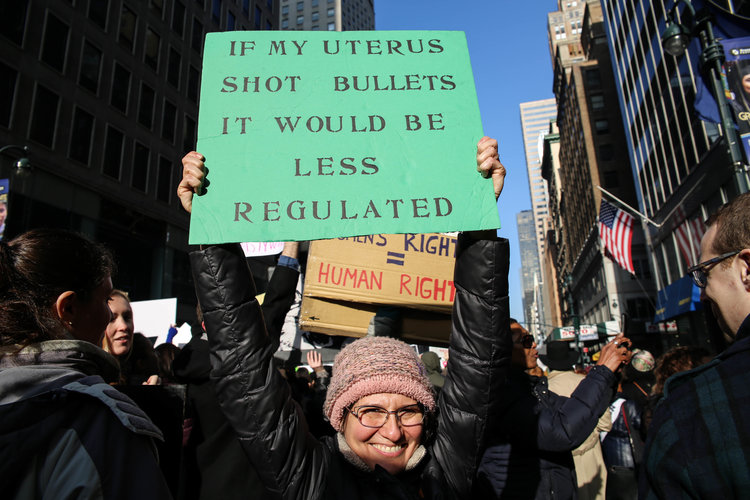 IF MY UTERUS
SHOT BULLETS
IT WOULD BE
LESS
REGULATED
WOMENS RIGHTS
=
HUMAN RIGHT